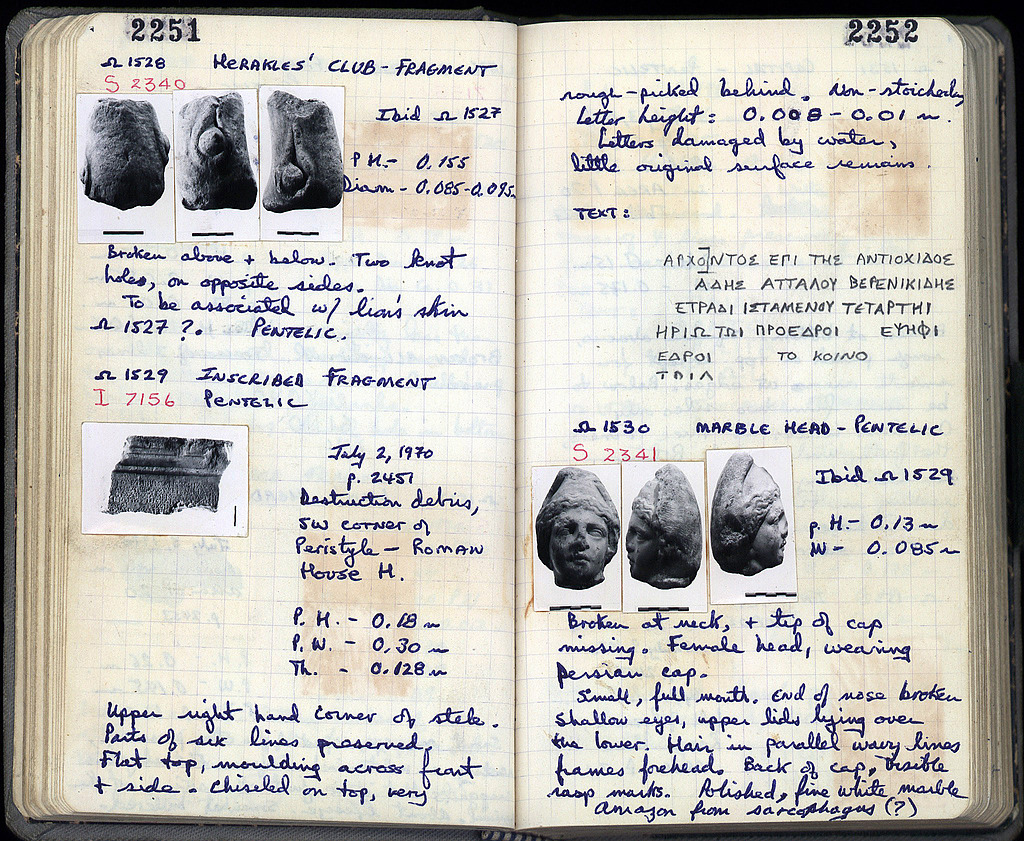 2251
Ω 1528 HERAKLES' CLUB - FRAGMENT
S 2340
Ibid Ω 1527
P H. - 0.155
Diam - 0.085-0.095m
Broken above + below. Two knot
holes, on opposite sides.
To be associated w/ lion's skin
Ω 1527 ?. PENTELIC.
Ω 1529 INSCRIBED FRAGMENT
I 7156 PENTELIC
July 2, 1970
p. 2451
Destruction debris,
SW corner of
Peristyle - ROMAN
House H.
P. H. - 0.18 m
P. W. - 0.30 m
Th. - 0.128 m
Upper right hand corner of stele.
Parts of six lines preserved.
Flat top, moulding across front
+ side. Chiseled on top, very
2252
rough-picked behind. Non-stoichedon
Letter height: 0.008 - 0.01 m.
Letters damaged by water,
little original surface remains.
TEXT:
ΑΡΧΟ]ΝΤΟΣ ΕΠΙ ΤΗΣ ΑΝΤΙΟΧΙΔΟΣ
ΑΔΗΣ ΑΤΤΑΛΟΥ ΒΕΡΕΝΙΚΙΔΗΣ
ΕΤΡΑΔΙ ΙΣΤΑΜΕΝΟΥ ΤΕΤΑΡΤΗΙ
ΗΡΙΩ ΤΩΙ ΠΡΟΕΔΡΟΙ ΕΥΗΦΙ
ΕΔΡΟΙ ΤΟ ΚΟΙΝΟ
Ω 1530 MARBLE HEAD - PENTELIC
S 2341
Ibid Ω 1529
p. H. - 0.13 m
W - 0.085 m
Broken at neck, + tip of cap
missing. Female head, wearing
Persian cap.
Small, full mouth. End of nose broken
Shallow eyes, upper lids lying over
the lower. Hair in parallel wavy lines
frames forehead. Back of cap, visible
rasp marks. Polished, fine white marble
Amazon from sarcophagus (?)